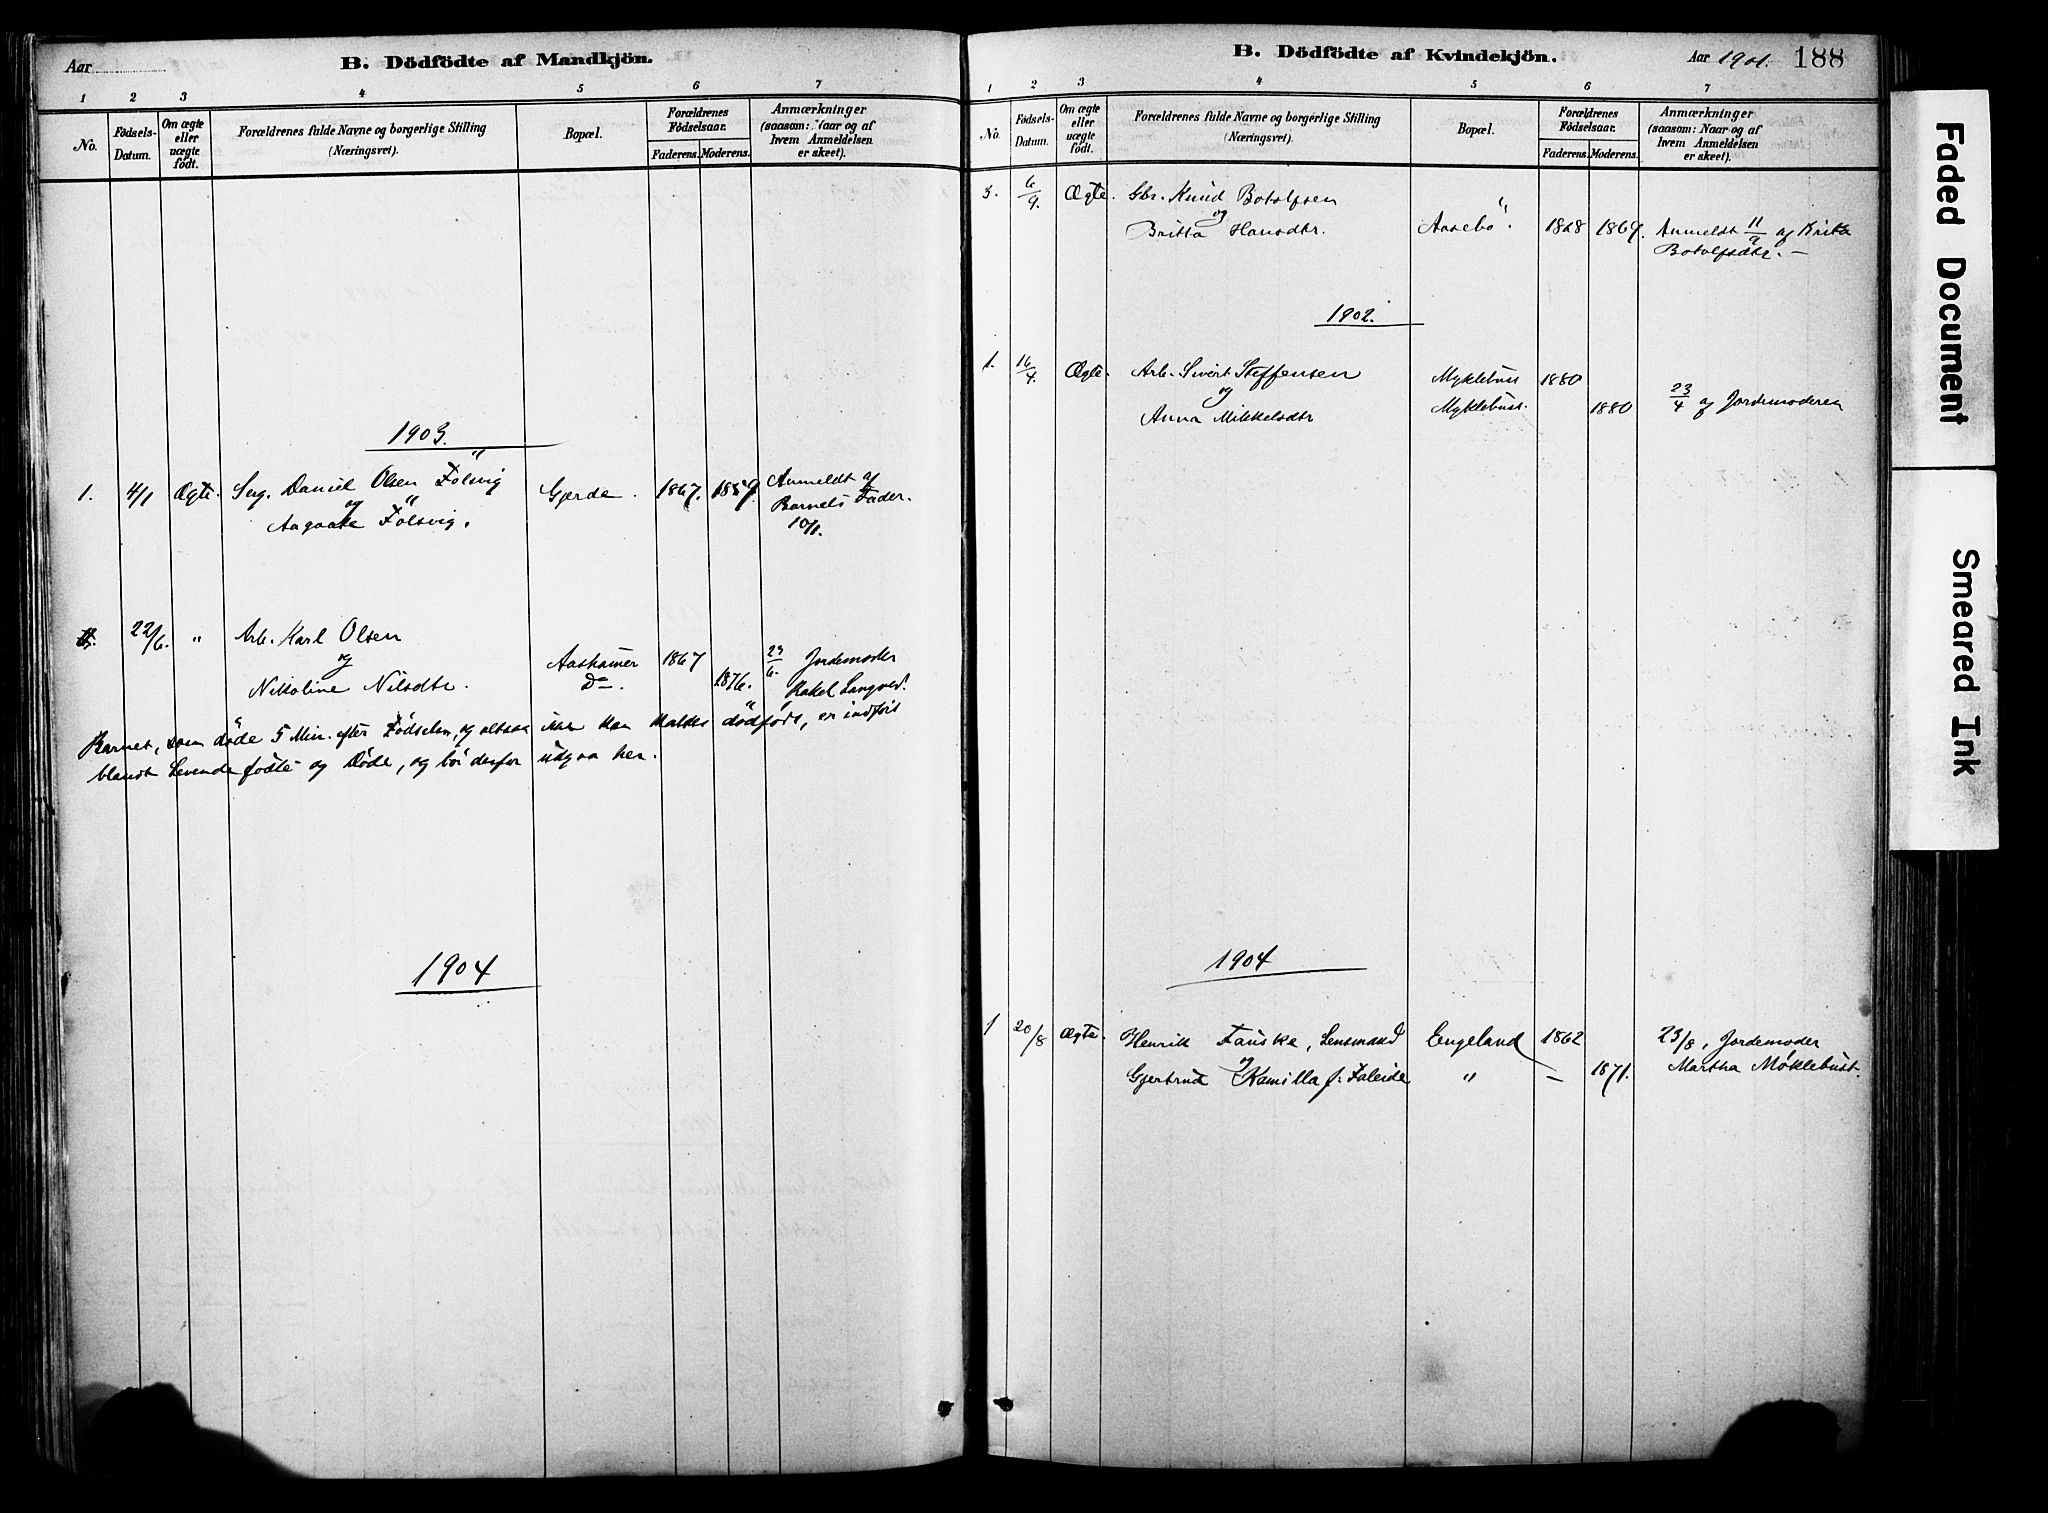 Aar
B. Dödfödte af Mandkjön.
1 2 3 4 5 6 7
No.
Födsels-Datum.
Om ægte eller uægte födt.
Forældrenes fulde Navne og borgerlige Stilling
(Næringsvei).
Bopæl.
Forældrenes Födselsaar.
Faderens. Moderens.
Anmærkninger
(saasom: Naar og af
hvem Anmeldelsen
er skeet).
1903.
1. 4/1 Ægte. Serg. Daniel Olsen Fölsvig Gjerde. 1867. 1859. Anmeldt af
og Barnets Fader.
Aagaate Fölsvig. 10/1.
22/6. " Arb. Karl Olsen
og Aashamer 1867 23/6. Jordemoder
Nikoline Nilsdtr. Do. 1876. Rakel Langved.
Barnet, som döde 5 Min. efter Födselen, og altsaa ikke kan kaldes dödfödt, er indfört
blandt Levendefödte og Döde, og bör derfor udgaa her.
1904
B. Dödfödte af Kvindekjön.
Aar 1901. 188
1 2 3 4 5 6 7
No.
Födsels-Datum.
Om ægte eller uægte födt.
Forældrenes fulde Navne og borgerlige Stilling
(Næringsvei).
Bopæl.
Forældrenes Födselsaar.
Faderens. Moderens.
Anmærkninger
(saasom: Naar og af
hvem Anmeldelsen
er skeet).
3. 6/9. Ægte. Gbr. Knud Botolfsen
og
Britta Hansdtr. Aasebö. 1868 1869. Anmeldt 11/9 af Brita
Botolfsdtr. —
1902.
1. 16/4. Ægte. Arb. Sivert Steffensen Myklebust 1880
og
Anna Mikkelsdtr Myklebust. 1880 23/4 af Jordemoderen
1904
1 20/8 Ægte. Henrik Fauske, Lensmand Eengeland 1862 23/8, Jordemoder
og
Gjertrud Kamilla f. Faleide " — 1871. Martha Møklebust.
Faded Document
Smeared Ink